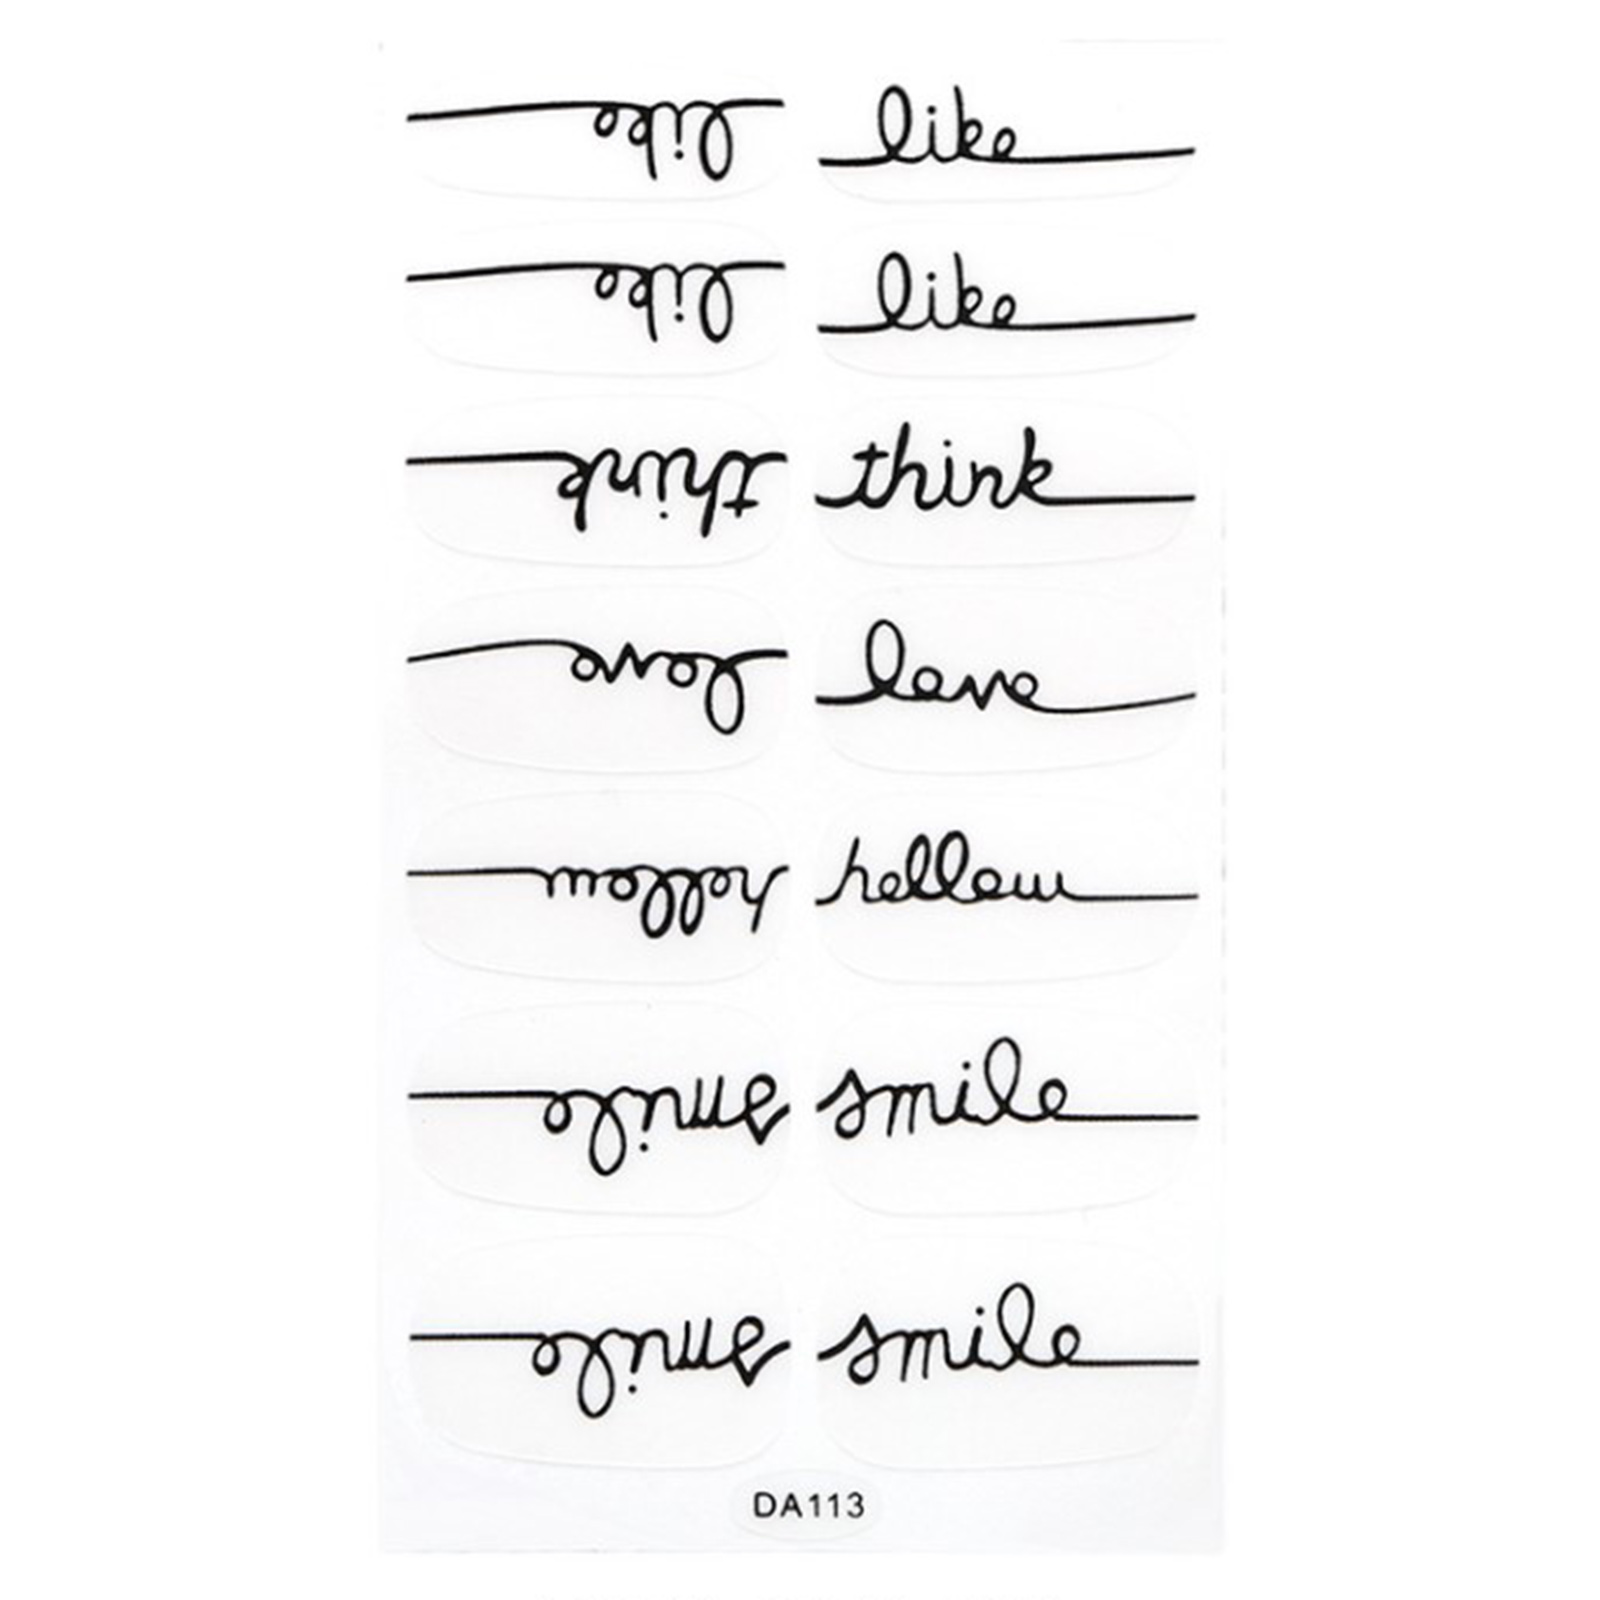 like like
like like
think think
love love
hellow hellow
smile smile
smile smile
DA113